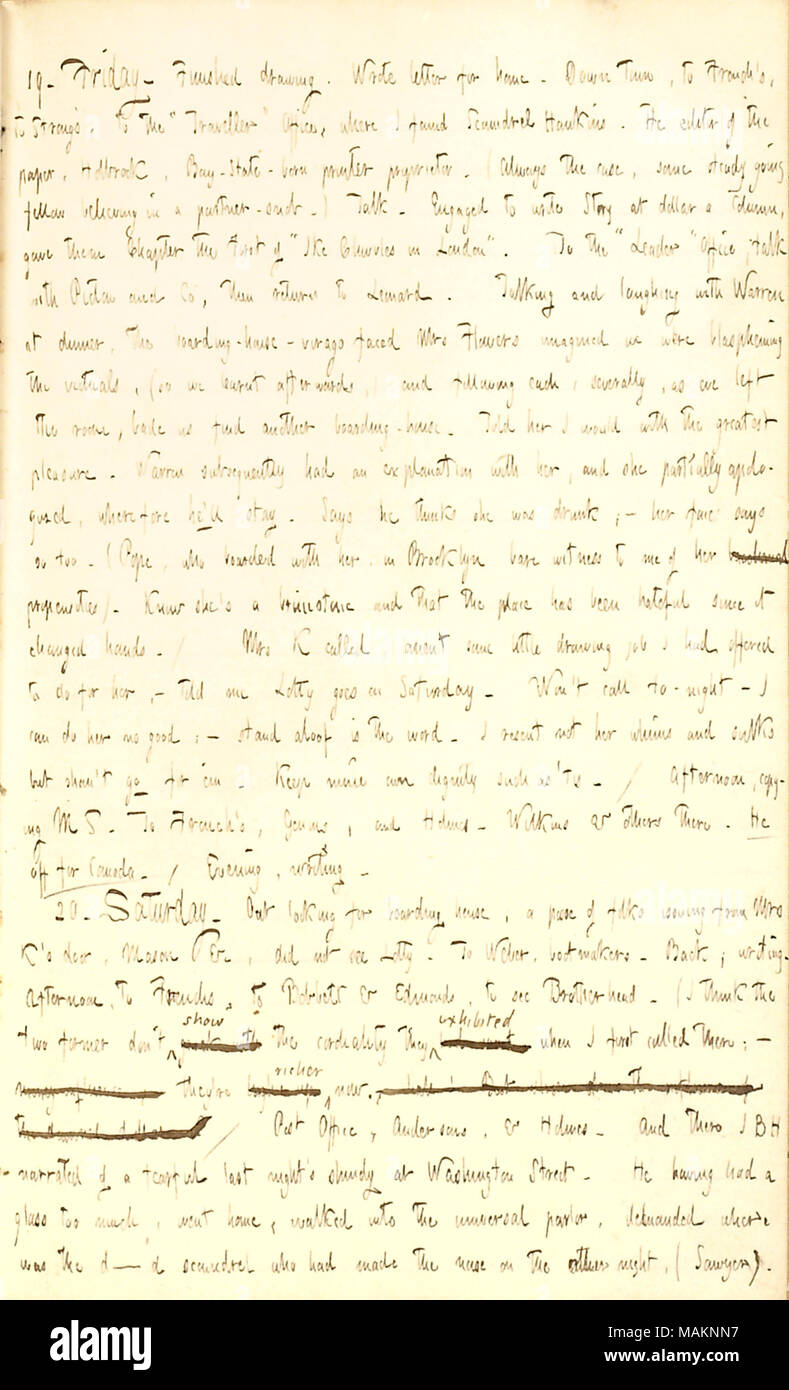 19. Friday. Finished drawing. Wrote letter for home. Down Town, to French's,
to Strong's. To the "Traveller" Office, where I found Scoundrel Hankins. He editor of the
paper, Holbrook, Bay-State-born printer proprietor. (Always the case, some steady going
fellow believing in a partner-snob.) Talk. Engaged to write Story at dollar a Column,
gave them Chapter the first of "Ike Chivvles in London". To the "Leader" Office, talk
with and Co, then return to Leonard. Talking and laughing with Warren
at dinner, the boarding-house-virago faced Mrs Flowers imagined we were blaspheming
the victuals, (so we learnt afterwards,) and following each, severally, as we left
the room, bade us find another boarding-house. Told her I would with the greatest
pleasure. Warren subsequently had an explanation with her, and she partially apolo-
gized, wherefore he'll stay. Says he thinks she was drunk; – her face says
so too. (Pope, who boarded with her in Brooklyn bare witness to me of her
propensities). Know she's a brimstone and that the place has been hateful since it
changed hands. / Mrs K called anent some little drawing job I had offered
to do for her, – told me Lotty goes on Saturday. Won't call to-night – I
can do her no good; – stand aloof is the word. I resent not her whims and sulks
but shan't go for 'em. Keep mine own dignity such as 'tis. / Afternoon, copy-
ing MS. To French's, Genns, and Holmes. Wilkins & others there. He
off for Canada. / Evening, writing.
20. Saturday. Out looking for boarding house, a posse of folks issuing from Mrs
K's door, Mason &c, did not see Lotty. To Weber, bootmakers. Back; writing.
Afternoon, to Frenchs, to Bobbett & Edmonds, to see Brotherhead. (I think the
two former don't show the cordiality they exhibited when I first called there; –
they're richer now.
/ Post Office, Andersons, & Holmes. And there J B H
narrated of a fearful last night's shindy at Washington Street. He having had a
glass too much, went home, walked into the universal parlor, demanded where
was the d—d scoundrel who had made the noise on the other night, (Sawyer).
alamy
Image ID: MAKNN7
www.alamy.com